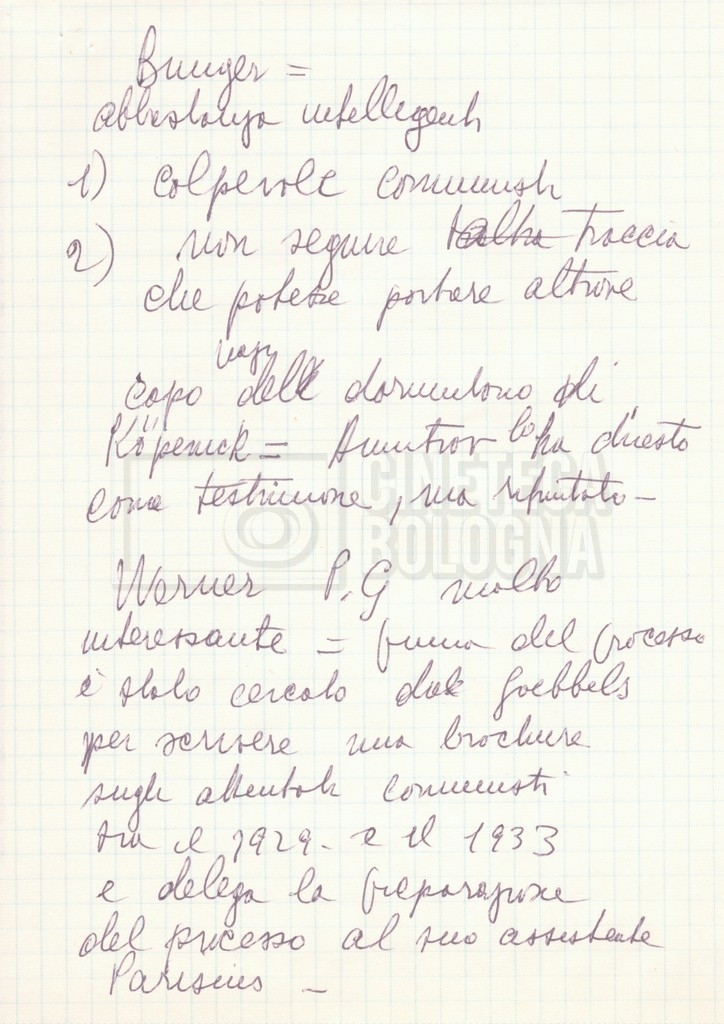 Bunger =
abbastanza intelligenti
1) colpevole comunisti
2) non seguire l'altra traccia
che potesse portare altrove
nazi
capo del dormitorio di
Köpenick = Dimitrov lo ha chiesto
come testimone, ma rifiutato -
CINETECA
BOLOGNA
Werner P.G molto
interessante = prima del processo
è stato cercato da Goebbels
per scrivere una brochure
sugli attentati comunisti
tra il 1929 - e il 1933
e delega la preparazione
del processo al suo assistente
Parisius -